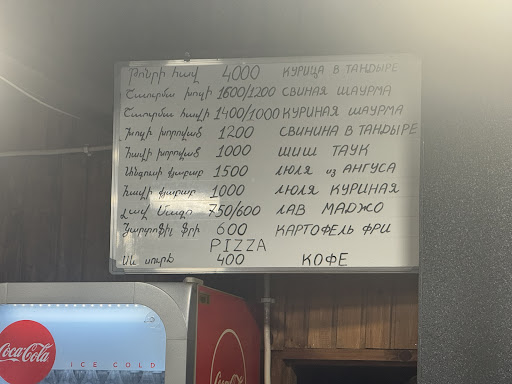 Թոնրի հավ 4000 КУРИЦА В ТАНДЫРЕ
Շաուրմա խոզի 1600/1200 СВИНАЯ ШАУРМА
Շաուրմա հավի 1400/1000 КУРИНАЯ ШАУРМА
Խոզի խորոված 1200 СВИНИНА В ТАНДЫРЕ
Հավի խորոված 1000 ШИШ ТАУК
Անգուսի քյաբաբ 1500 ЛЮЛЯ ИЗ АНГУСА
Հավի քյաբաբ 1000 ЛЮЛЯ КУРИНАЯ
Լավ Մաջո 750/600 ЛАВ МАДЖО
Կարտոֆիլ ֆրի 600 КАРТОФЕЛЬ ФРИ
PIZZA
Սև սուրճ 400 КОФЕ
Coca-Cola
ICE COLD